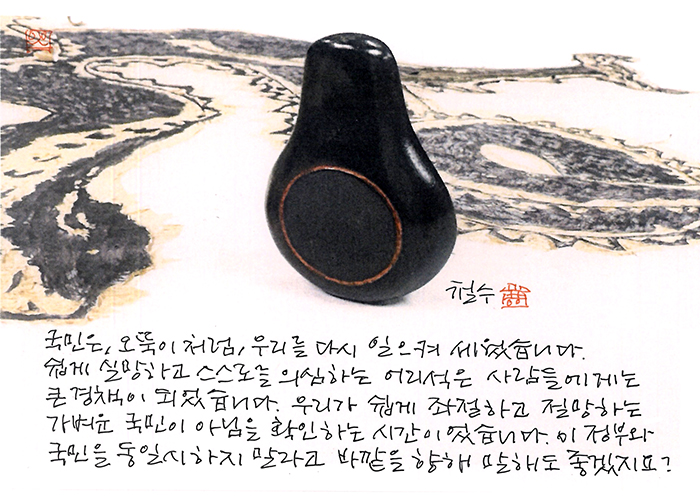 철수
국민은, 오뚝이처럼, 우리를 다시 일으켜 세웠습니다.
쉽게 실망하고 스스로를 의심하는 어리석은 사람들에게는
큰 경책이 되었습니다. 우리가 쉽게 좌절하고 절망하는
가벼운 국민이 아님을 확인하는 시간이었습니다. 이 정부와
국민을 동일시하지 말라고 바깥을 향해 말해도 좋겠지요?